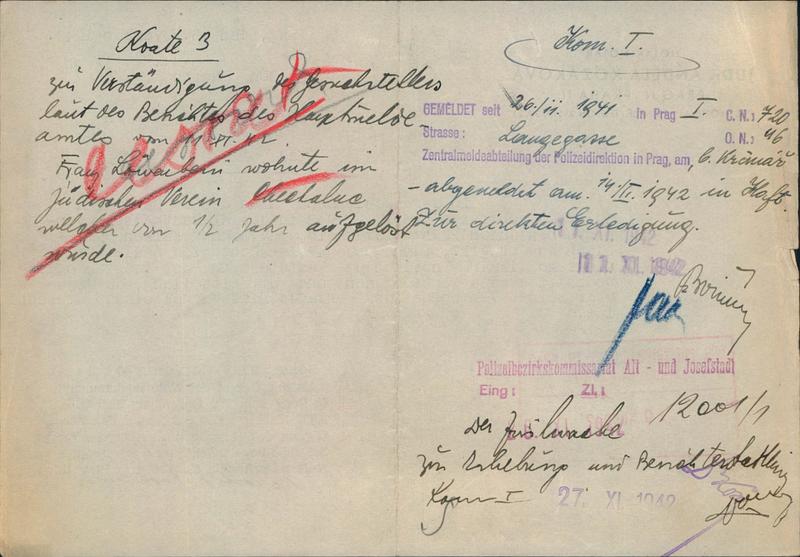 Kovate 3
zur Verständigung des Gesuchstellers
laut des Berichtes des Hauptmelde
amtes vom 11. XI. 42
Frau wohnte im
Jüdischen Verein
welcher vor 1/2 Jahr aufgelöst
wurde.
Kom. I.
GEMELDET seit 26./II. 1941 in Prag I. C. N.: 720
Strasse: Langegasse O. N.: 46
Zentralmeldeabteilung der Polizeidirektion in Prag, am, b. Krämář
- abgemeldet am 14/II. 1942 in Haft.
Zur direkten Erledigung.
11. XI. 1942
Polizeibezirkskommissariat Alt - und Josefstadt
Eing: Zl.:
12001/1
Der Zivilwache
zu Erhebung und Berichterstattung
Kom I 27. XI. 1942